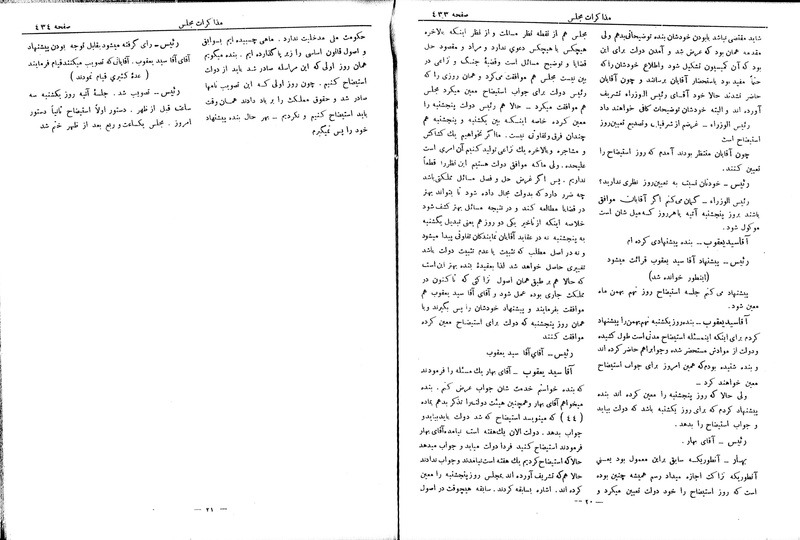 مذاکرات مجلس
صفحه ۴۳۳
شاید مقتضی نباشد یا بودن خودشان بنده توضیحاتی بدهم ولی
مقدمه همان بود که عرض شد و آمدن دولت برای این
بود که آن کمیسیون تشکیل شود و اطلاع خودشان را که
حتماً مفید بود باستحضار آقایان برسانند و چون آقایان
حاضر نشدند حالا خود آقای رئیس الوزراء تشریف
آورده اند و البته خودشان توضیحات کافی خواهند داد
رئیس الوزراء ـ غرضم از شرفیابی و تصدیع تعیین روز
استیضاح است
چون آقایان منتظر بودند آمدم که روز استیضاح را
تعیین کنند.
رئیس ـ خودتان نسبت به تعیین روز نظری ندارید؟
رئیس الوزراء ـ گمان می کنم اگر آقایان موافق
باشند بروز پنجشنبه آتیه یا هر روز که میل شان است
موکول شود.
آقا سید یعقوب ـ بنده پیشنهادی کرده ام
رئیس ـ پیشنهاد آقا سید یعقوب قرائت میشود
(اینطور خوانده شد)
پیشنهاد می کنم جلسه استیضاح روز نهم بهمن ماه
معین شود.
آقا سید یعقوب ـ بنده روز یکشنبه نهم بهمن را پیشنهاد
کردم برای اینکه این مسئله استیضاح مدتی است طول کشیده
و دولت از موادش مستحضر شده و جوابهاهم حاضر کرده اند
و بنده شنیده بودم که همین امروز برای جواب استیضاح
معین خواهند کرد ـ
ولی حالا که روز پنجشنبه را معین کرده اند بنده
پیشنهاد کردم که برای روز یکشنبه باشد که دولت بیاید
و جواب استیضاح را بدهد.
رئیس ـ آقای بهار.
بهار ـ آنطوریکه سابق براین معمول بود یعنی
آنطوریکه نزاکت اجازه میداد رسم همیشه چنین بوده
است که روز استیضاح را خود دولت تعیین میکرد و
مجلس هم از نقطه نظر مسالمت و از نظر اینکه بالاخره
هیچکس با هیچکس دعوی ندارد و مراد و مقصود حل
قضایا و توضیح مسائل است و قضیهٔ جنگ و نزاعی در
بین نیست مجلس هم موافقت می کرد و همان روزی را که
رئیس دولت برای جواب استیضاح معین میکرد مجلس
هم موافقت میکرد ـ حالا هم رئیس دولت پنجشنبه را
معین کرده خاصه اینکه بین یکشنبه و پنجشنبه هم
چندان فرق و تفاوتی نیست. ما اگر بخواهیم یك کشاکش
و مشاجره و بالاخره یك نزاعی تولید کنیم آن امری است
علیحده. ولی ما که موافق دولت هستیم این نظر را قطعاً
نداریم. پس اگر غرض حل و فصل مسائل مملکتی باشد
چه ضرر دارد که بدولت مجال داده شود تا بتواند بهتر
در قضایا مطالعه کند و در نتیجه مسائل بهتر کشف شود
خلاصه اینکه از تأخیر یکی دو روز هم یعنی تبدیل یکشنبه
به پنجشنبه نه در عقاید آقایان نمایندگان تفاوتی پیدا میشود
و نه در اصل مطلب که تثبیت یا عدم تثبیت دولت باشد
تغییری حاصل خواهد شد لذا بعقیدهٔ بنده بهتر این است
که حالا هم بر طبق همان اصول نزاکتی که تاکنون در
مملکت جاری بوده عمل شود و آقای آقا سید یعقوب هم
موافقت بفرمایند و پیشنهاد خودشان را پس بگیرند و با
همان روز پنجشنبه که دولت برای استیضاح معین کرده
موافقت کنند
رئیس ـ آقای آقا سید یعقوب
آقا سید یعقوب ـ آقای بهار یك مسئله را فرمودند
که بنده خواستم خدمت شان جواب عرض کنم. بنده
میخواهم آقای بهار و همچنین هیئت دولت را تذکر بدهم بماده
(۴۴) که مینویسد استیضاح که شد دولت باید بیاید و
جواب بدهد. دولت الان یك هفته است نیامده آقای بهار
فرمودند استیضاح کنید فردا دولت میاید و جواب میدهد
حالا که استیضاح کردیم یك هفته است نیامدند و جواب ندادند
حالا هم که تشریف آورده اند بمجلس روز پنجشنبه را معین
کرده اند. اشاره بسابقه کردند. سابقه هیچوقت در اصول
ـ ۲۰ ـ
مذاکرات مجلس
صفحه ۴۳۴
حکومت ملی مدخلیت ندارد. ماهی چسبیده ایم بسوابق
و اصول قانون اساسی را زیر پا گذارده ایم. بنده میگویم
همان روز اولی که این مراسله صادر شد باید از دولت
استیضاح کنیم. چون روز اولی که این تصویب نامها
صادر شد و حقوق مملکت را بر باد دادند همان وقت
باید استیضاح کنیم و نکردیم ـ بهر حال بنده پیشنهاد
خود را پس نمیگیرم
رئیس ـ رأی گرفته میشود بقابل توجه بودن پیشنهاد
آقای آقا سید یعقوب. آقایانی که تصویب میکنند قیام فرمایند
(عدهٔ کثیری قیام نمودند)
رئیس ـ تصویب شد. جلسهٔ آتیه روز یکشنبه سه
ساعت قبل از ظهر. دستور اولاً استیضاح ثانیاً دستور
امروز. مجلس یکساعت و ربع بعد از ظهر ختم شد
ـ ۲۱ ـ